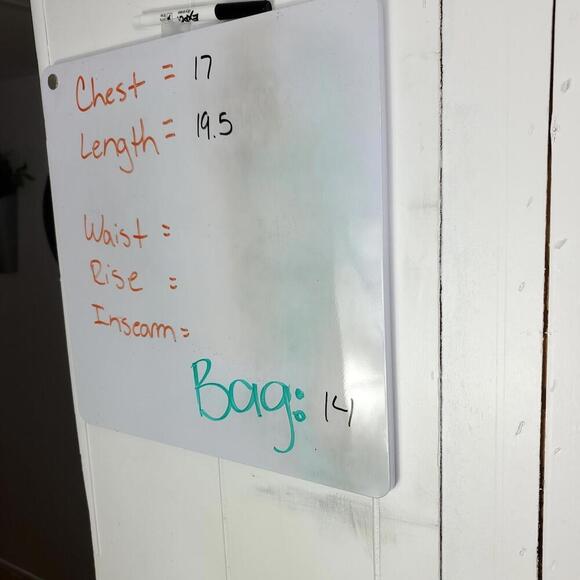 EXPO
Chest = 17
Length = 19.5
Waist =
Rise =
Inseam =
Bag: 14